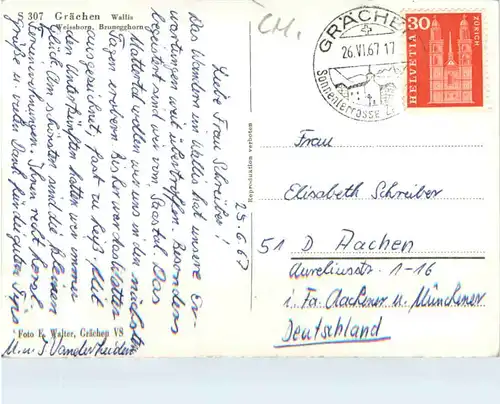 S 307 Grächen Wallis
Weisshorn, Brunegghorn
CH.
GRÄCHEN
26.VI.67 17
Sonnenterrasse
30
HELVETIA
ZÜRICH
23.6.67
Liebe Frau Schreiber!
Das Wandern im Wallis hat unsere Er-
wartungen weit übertroffen. Besonders
begeistert sind wir vom Saastal. Das
Mattertal wollen wir uns in den nächsten
Tagen erobern. Bisher war das Wetter
ausgezeichnet, fast zu heiß. Mit
den Unterkünften hatten wir immer
Glück. Am schönsten sind die kleinen
Ferienwohnungen. Ihnen recht herzl.
Grüße u. vielen Dank für die guten Tips
M. u. J. Vanderheiden
Foto E. Walter, Grächen VS
Reproduktion verboten
Frau
Elisabeth Schreiber
51 D Aachen
Aureliusstr. 1-16
i. Fa. Aachener u. Münchener
Deutschland